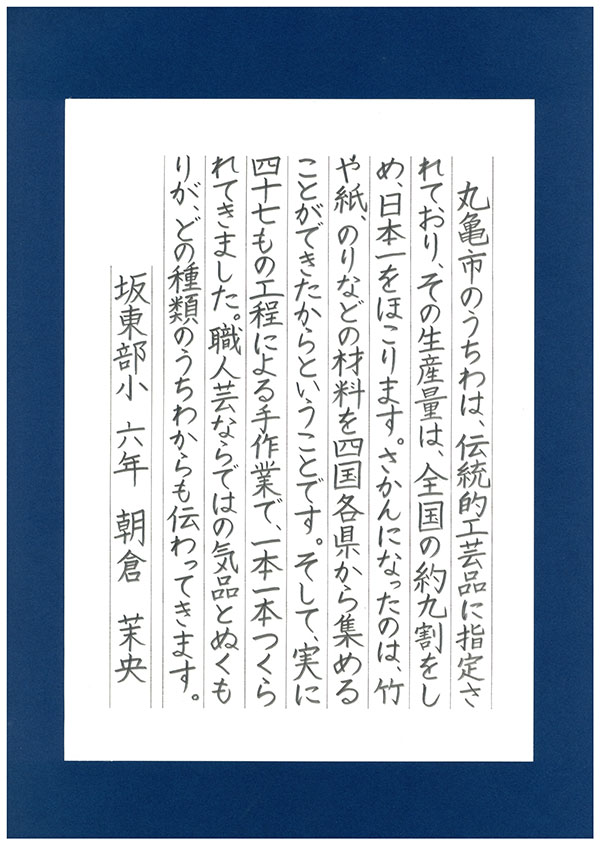 丸亀市のうちわは、伝統的工芸品に指定さ
れており、その生産量は、全国の約九割をし
め、日本一をほこります。さかんになったのは、竹
や紙、のりなどの材料を四国各県から集める
ことができたからということです。そして、実に
四十七もの工程による手作業で、一本一本つくら
れてきました。職人芸ならではの気品とぬくも
りが、どの種類のうちわからも伝わってきます。
坂東部小 六年 朝倉 茉央